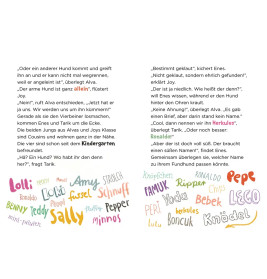 „Oder ein anderer Hund kommt und greift
ihn an und er kann nicht mal wegrennen,
weil er angeleint ist", überlegt Alva.
„Der arme Hund ist ganz allein", flüstert
Joy.
„Nein!", ruft Alva entschieden. „Jetzt hat er
ja uns. Wir werden uns um ihn kümmern!"
Gerade als die Vierbeiner loslaufen,
kommen Enes und Tarik um die Ecke.
Die beiden Jungs aus Alvas und Joys Klasse
sind Cousins und wohnen ganz in der Nähe.
Die vier sind schon seit dem Kindergarten
befreundet.
„Hä? Ein Hund? Wo habt ihr den denn
her?", fragt Tarik.
Lolli
Amy
Strubbel
Teddy
Fussel
Schnuff
BENNY
Peter
Sally
Pepper
mini
pumuckel
minnos
„Bestimmt geklaut", kichert Enes.
„Nicht geklaut, sondern ehrlich gefunden!",
erklärt Joy.
„Der ist ja niedlich. Wie heißt der denn?",
will Enes wissen, während er den Hund
hinter den Ohren krault.
„Keine Ahnung!", überlegt Alva. „Es gab
einen Brief, aber darin stand kein Name."
„Cool, dann nennen wir ihn Herkules",
überlegt Tarik. „Oder noch besser
Ronaldo!"
„Aber der ist doch voll süß. Der braucht
einen süßen Namen!", findet Enes.
Gemeinsam überlegen sie, welcher Name
zu ihrem Fundhund passen könnte.
Krümelchen
RONALDO
Pepe
PAMUK
Ripper
Chip
Bebek
LEGO
PERI
YODA
Bobby
lulu
Boncuk
Knödel